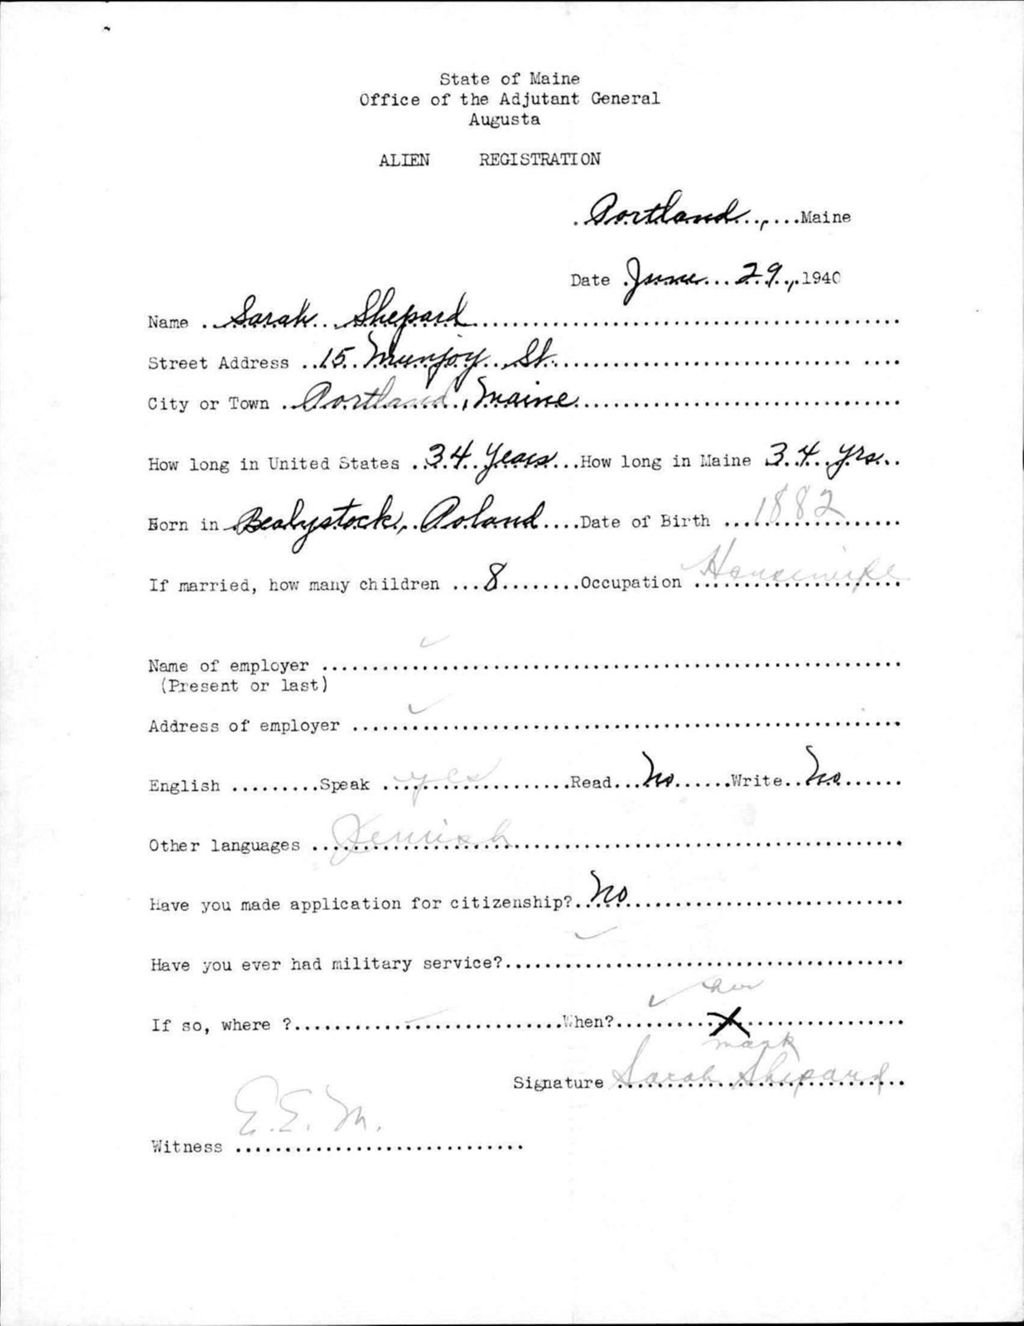 State of Maine
Office of the Adjutant General
Augusta
ALIEN REGISTRATION
Portland, Maine
Date June 29, 1940
Name Sarah Shepard
Street Address 15 Munjoy St.
City or Town Portland, Maine
How long in United States 34 years How long in Maine 34 yrs.
Born in Bealystock, Poland Date of Birth 1882
If married, how many children 8 Occupation Housewife
Name of employer
(Present or last)
Address of employer
English Speak yes Read No Write No
Other languages Jewish
Have you made application for citizenship? No
Have you ever had military service?
her
If so, where ? When? X
mark
Signature Sarah Shepard
E. E. M.
Witness